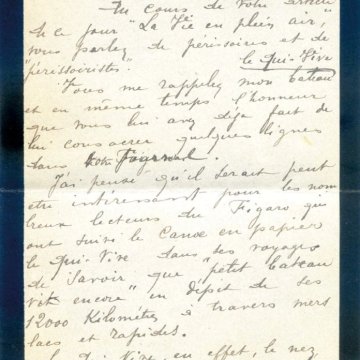 Au cours de votre article
de ce jour "La Vie en plein air,"
vous parlez de périssoires et de
"périssoiristes".
le Qui-Vive
Vous me rappelez mon bateau
et en même temps l'honneur
que vous lui avez déja fait de
lui consacrer quelques lignes
dans votre Journal.
J'ai pensé qu'il serait peut
être intéressant pour les nom
breux lecteurs du Figaro qui
ont suivi le Canoe en papier
le Qui-Vive dans ses voyages
de savoir que "petit bateau
vit encore" en dépit de ses
12000 Kilomètres à travers mers
lacs et rapides.
Le Qui-Vive, en effet, le nez